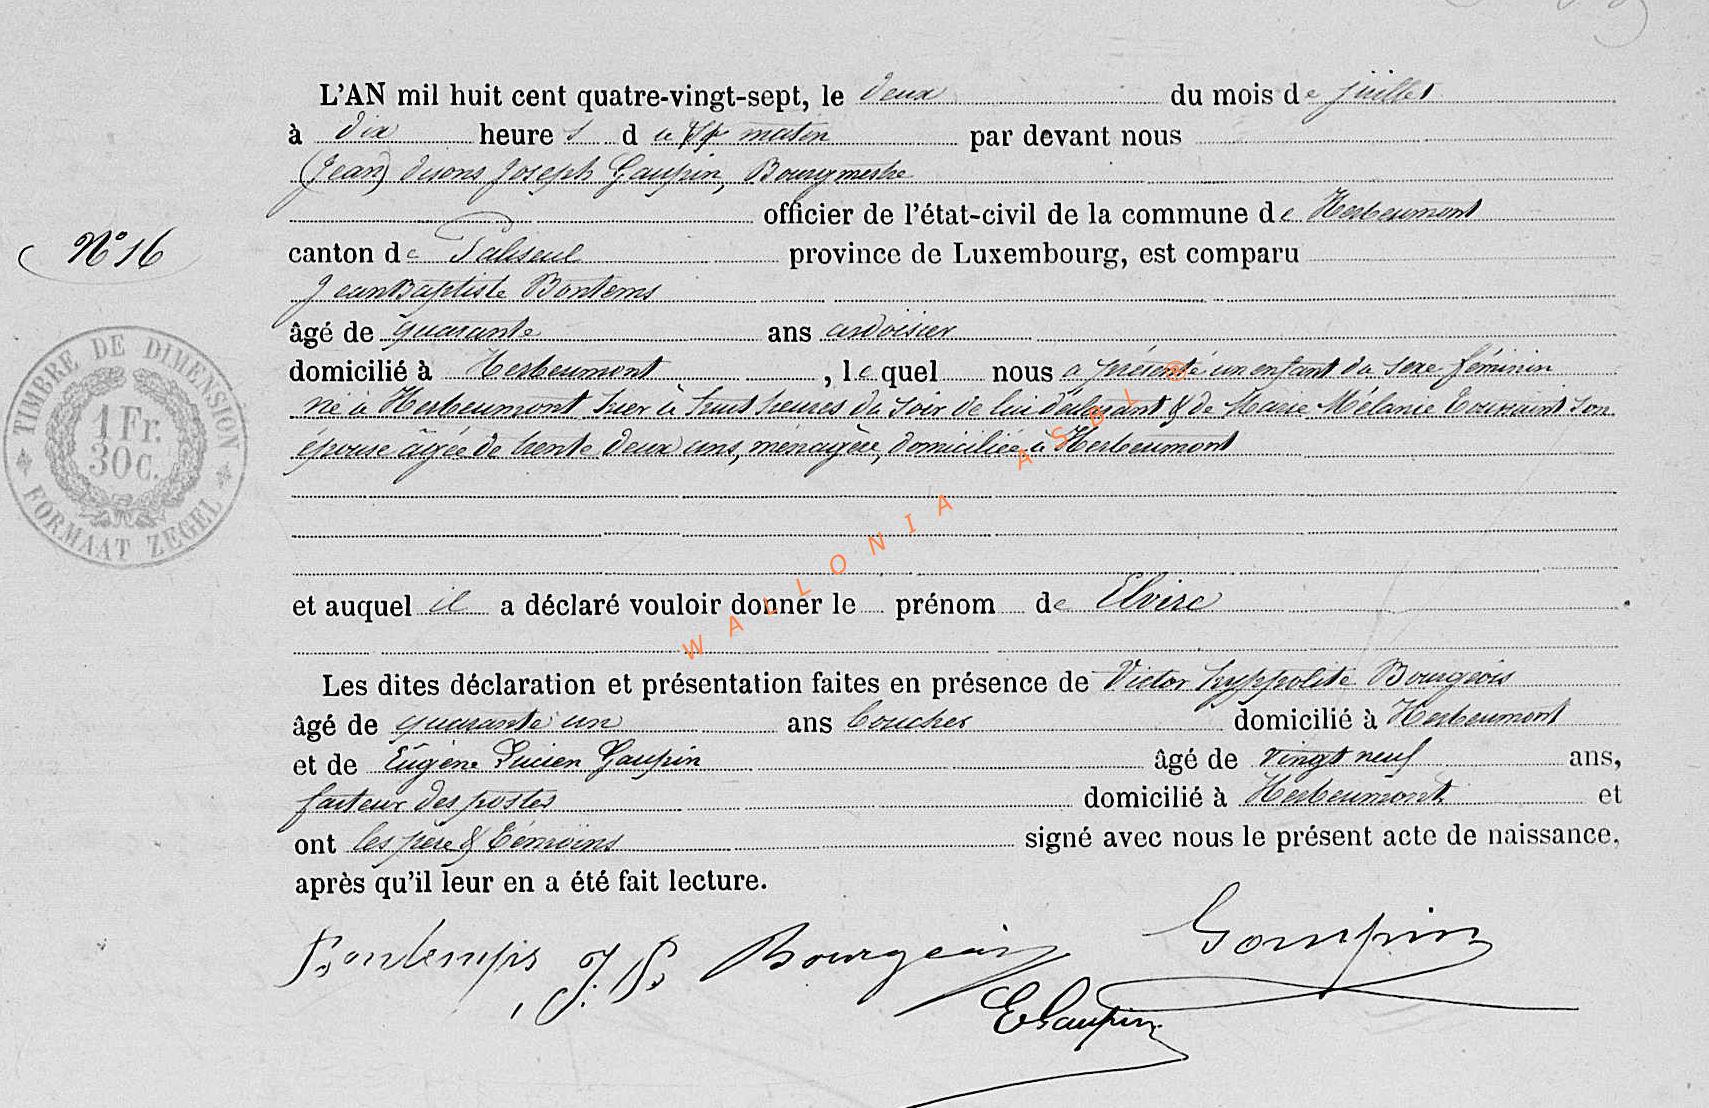 L'AN mil huit cent quatre-vingt-sept, le deux du mois de juillet
à dix heures du matin par devant nous
(Jean) disons Joseph Gaupin, Bourgmestre
officier de l'état-civil de la commune de Herbeumont
N° 16
canton de Paliseul province de Luxembourg, est comparu
Jean Baptiste Bontems
âgé de quarante ans ardoisier
domicilié à Herbeumont, lequel nous a présenté un enfant du sexe féminin
né à Herbeumont hier à huit heures du soir de lui déclarant & de Marie Mélanie Toussaint son
épouse âgée de trente deux ans, ménagère, domiciliée à Herbeumont
et auquel il a déclaré vouloir donner le prénom de Elvire.
Les dites déclaration et présentation faites en présence de Victor hyppolite Bourgeois
âgé de quarante un ans boucher domicilié à Herbeumont
et de Eugène Lucien Gaupin âgé de vingt neuf ans,
facteur des postes domicilié à Herbeumont et
ont les père & témoins signé avec nous le présent acte de naissance,
après qu'il leur en a été fait lecture.
Bontemps J. B. Bourgeois Gaupin
E Gaupin
TIMBRE DE DIMENSION
1 Fr.
30 C.
FORMAAT ZEGEL
WALLONIA ASBL ©